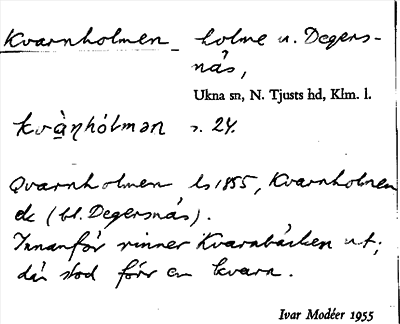 Kvarnholmen holme u. Degers-
näs,
Ukna sn, N. Tjusts hd, Klm. l.
kvà̱ṇhólmən s. 24.
Qvarnholmen ls 1855, Kvarnholmen
ek (bl. Degersnäs).
Innanför rinner Kvarnbäcken ut;
där stod förr en kvarn.
Ivar Modéer 1955